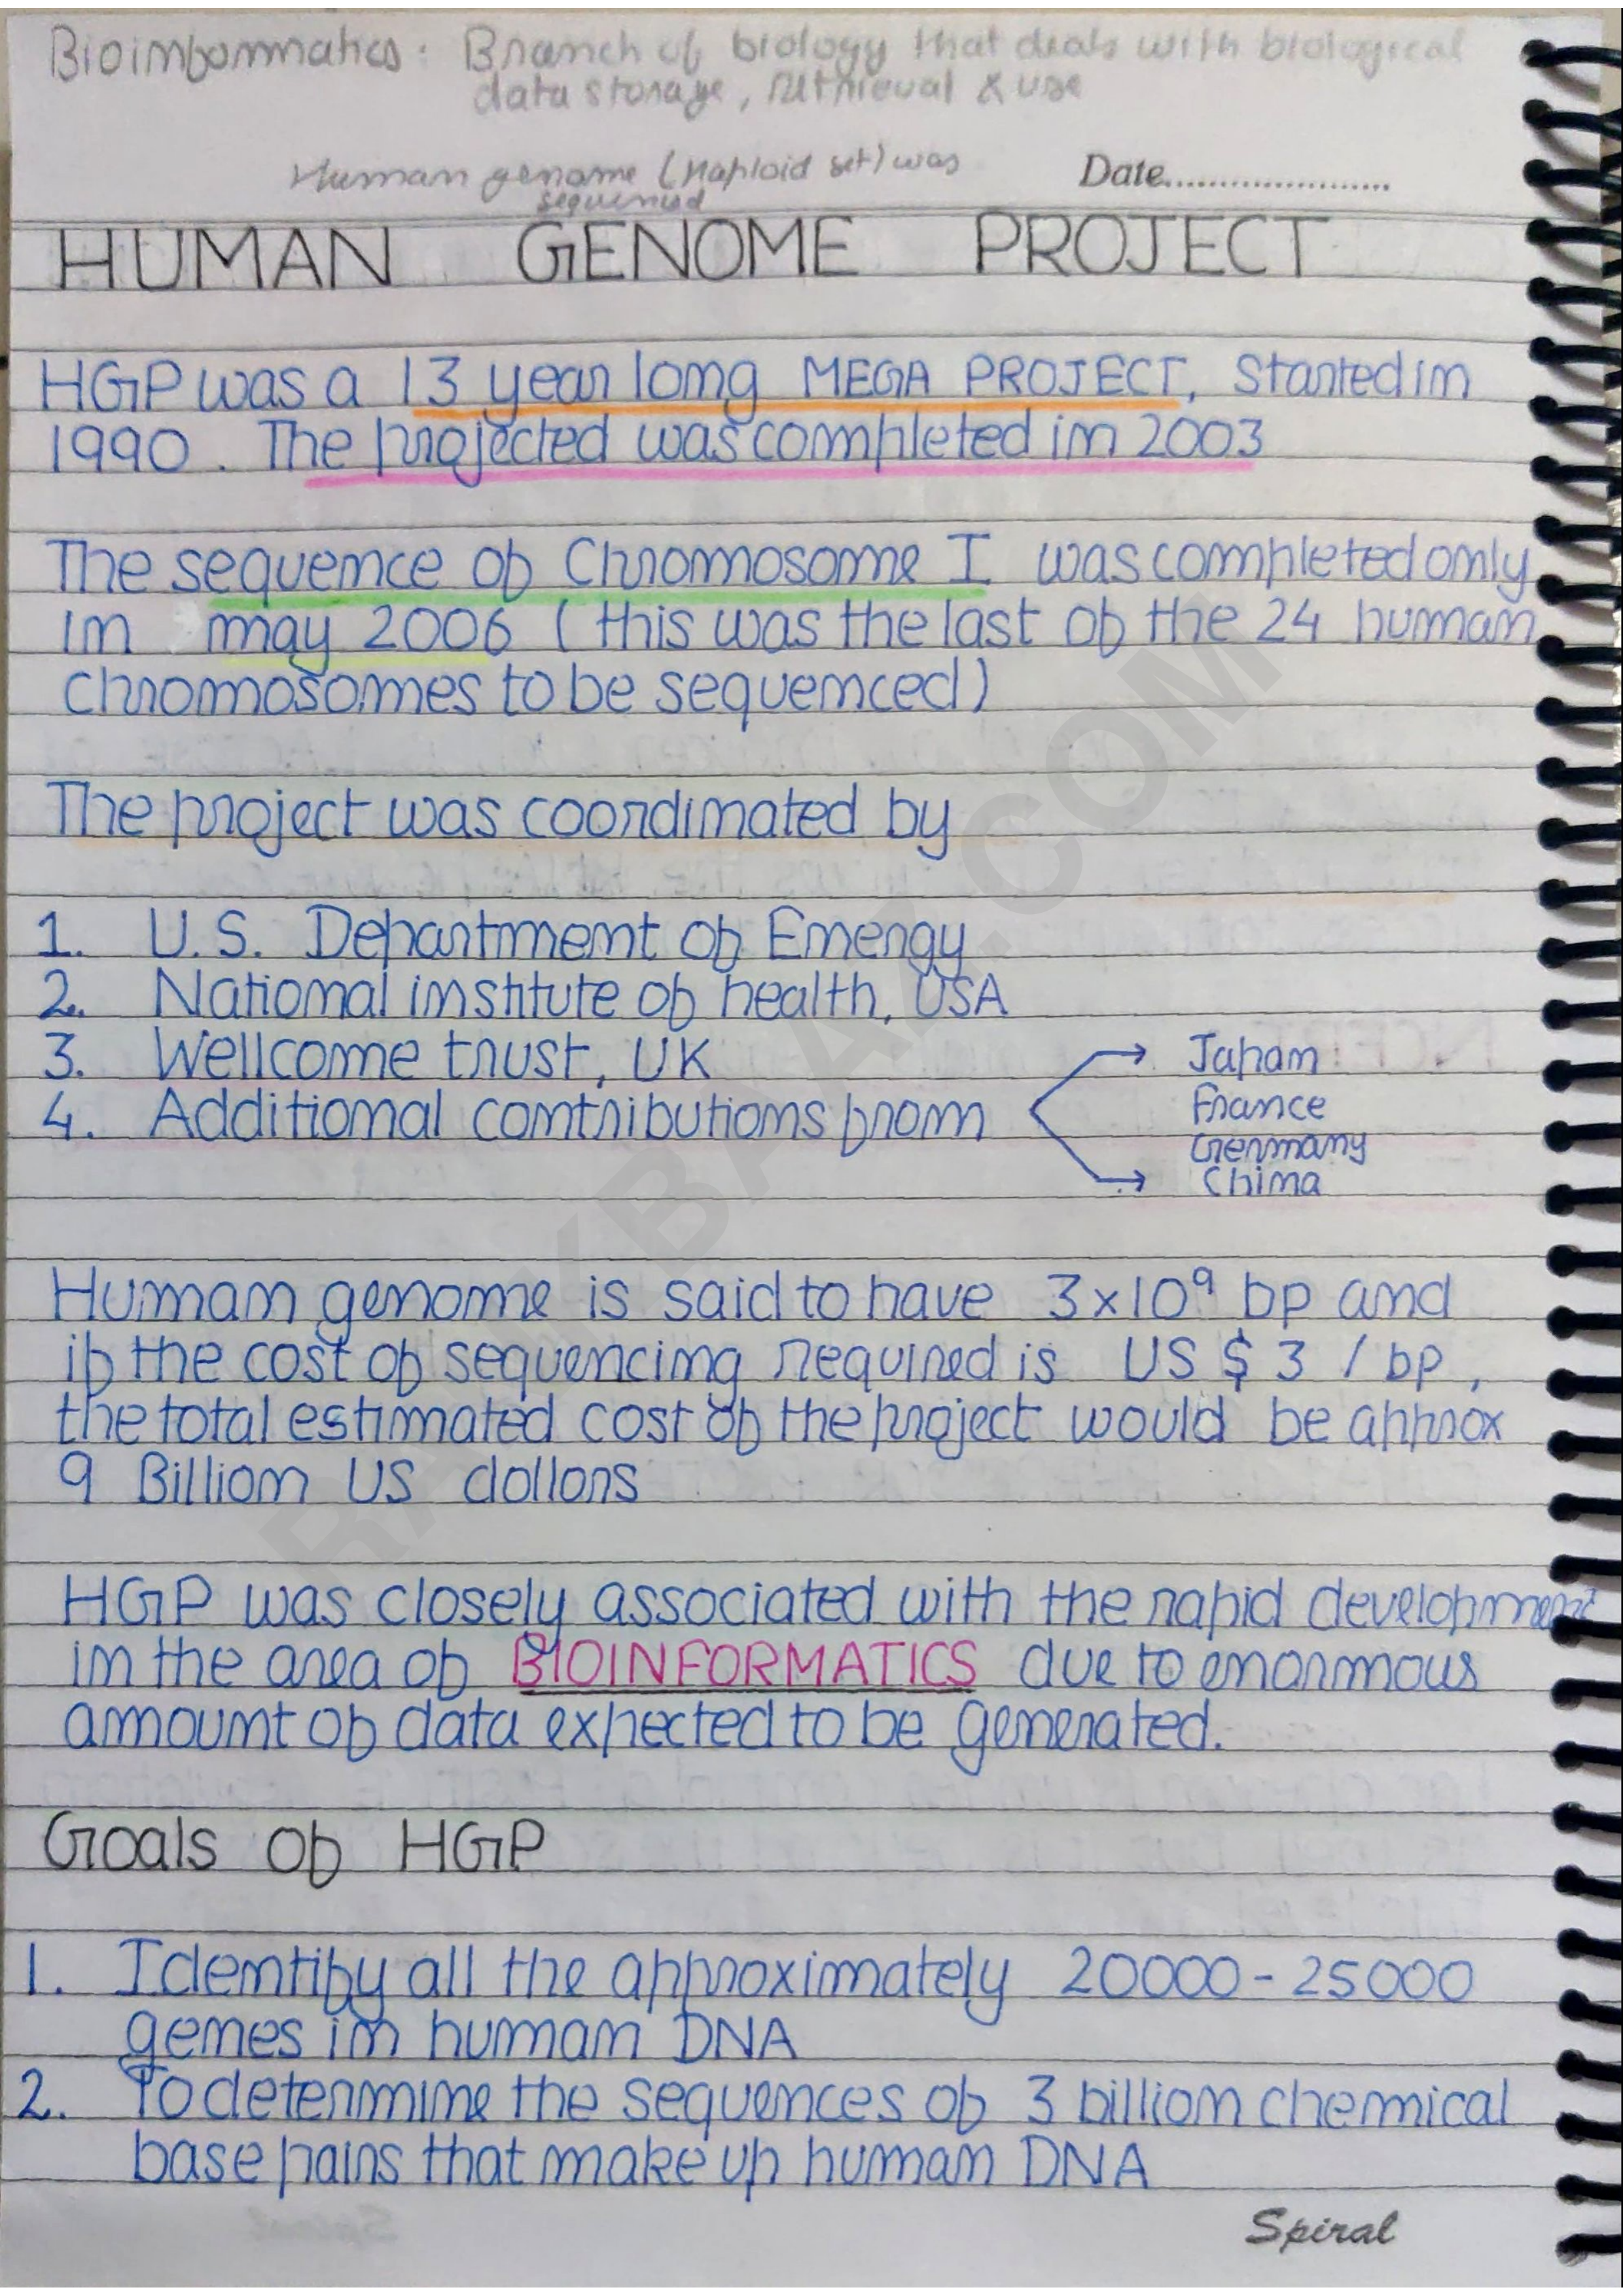 Bioinformatics: Branch of biology that deals with biological
data storage, retrieval & use
Human genome (Haploid set) was
sequenced
Date......................
HUMAN GENOME PROJECT
HGP was a 13 year long MEGA PROJECT, Started in
1990. The projected was completed in 2003
The sequence of Chromosome I was completed only
in may 2006 (this was the last of the 24 human
chromosomes to be sequenced)
The project was coordinated by
1. U.S. Department of Energy
2. National institute of health, USA
3. Wellcome trust, UK
4. Additional contributions from
→ Japan
France
Germany
→ China
Human genome is said to have 3x10⁹ bp and
if the cost of sequencing required is US $ 3 / bp,
the total estimated cost of the project would be approx
9 Billion US dollors
HGP was closely associated with the rapid development
in the area of BIOINFORMATICS due to enormous
amount of data expected to be generated.
Goals of HGP
1. Identify all the approximately 20000-25000
genes in human DNA
2. To determine the sequences of 3 billion chemical
base pairs that make up human DNA
Spiral
RANKBAAZ.COM